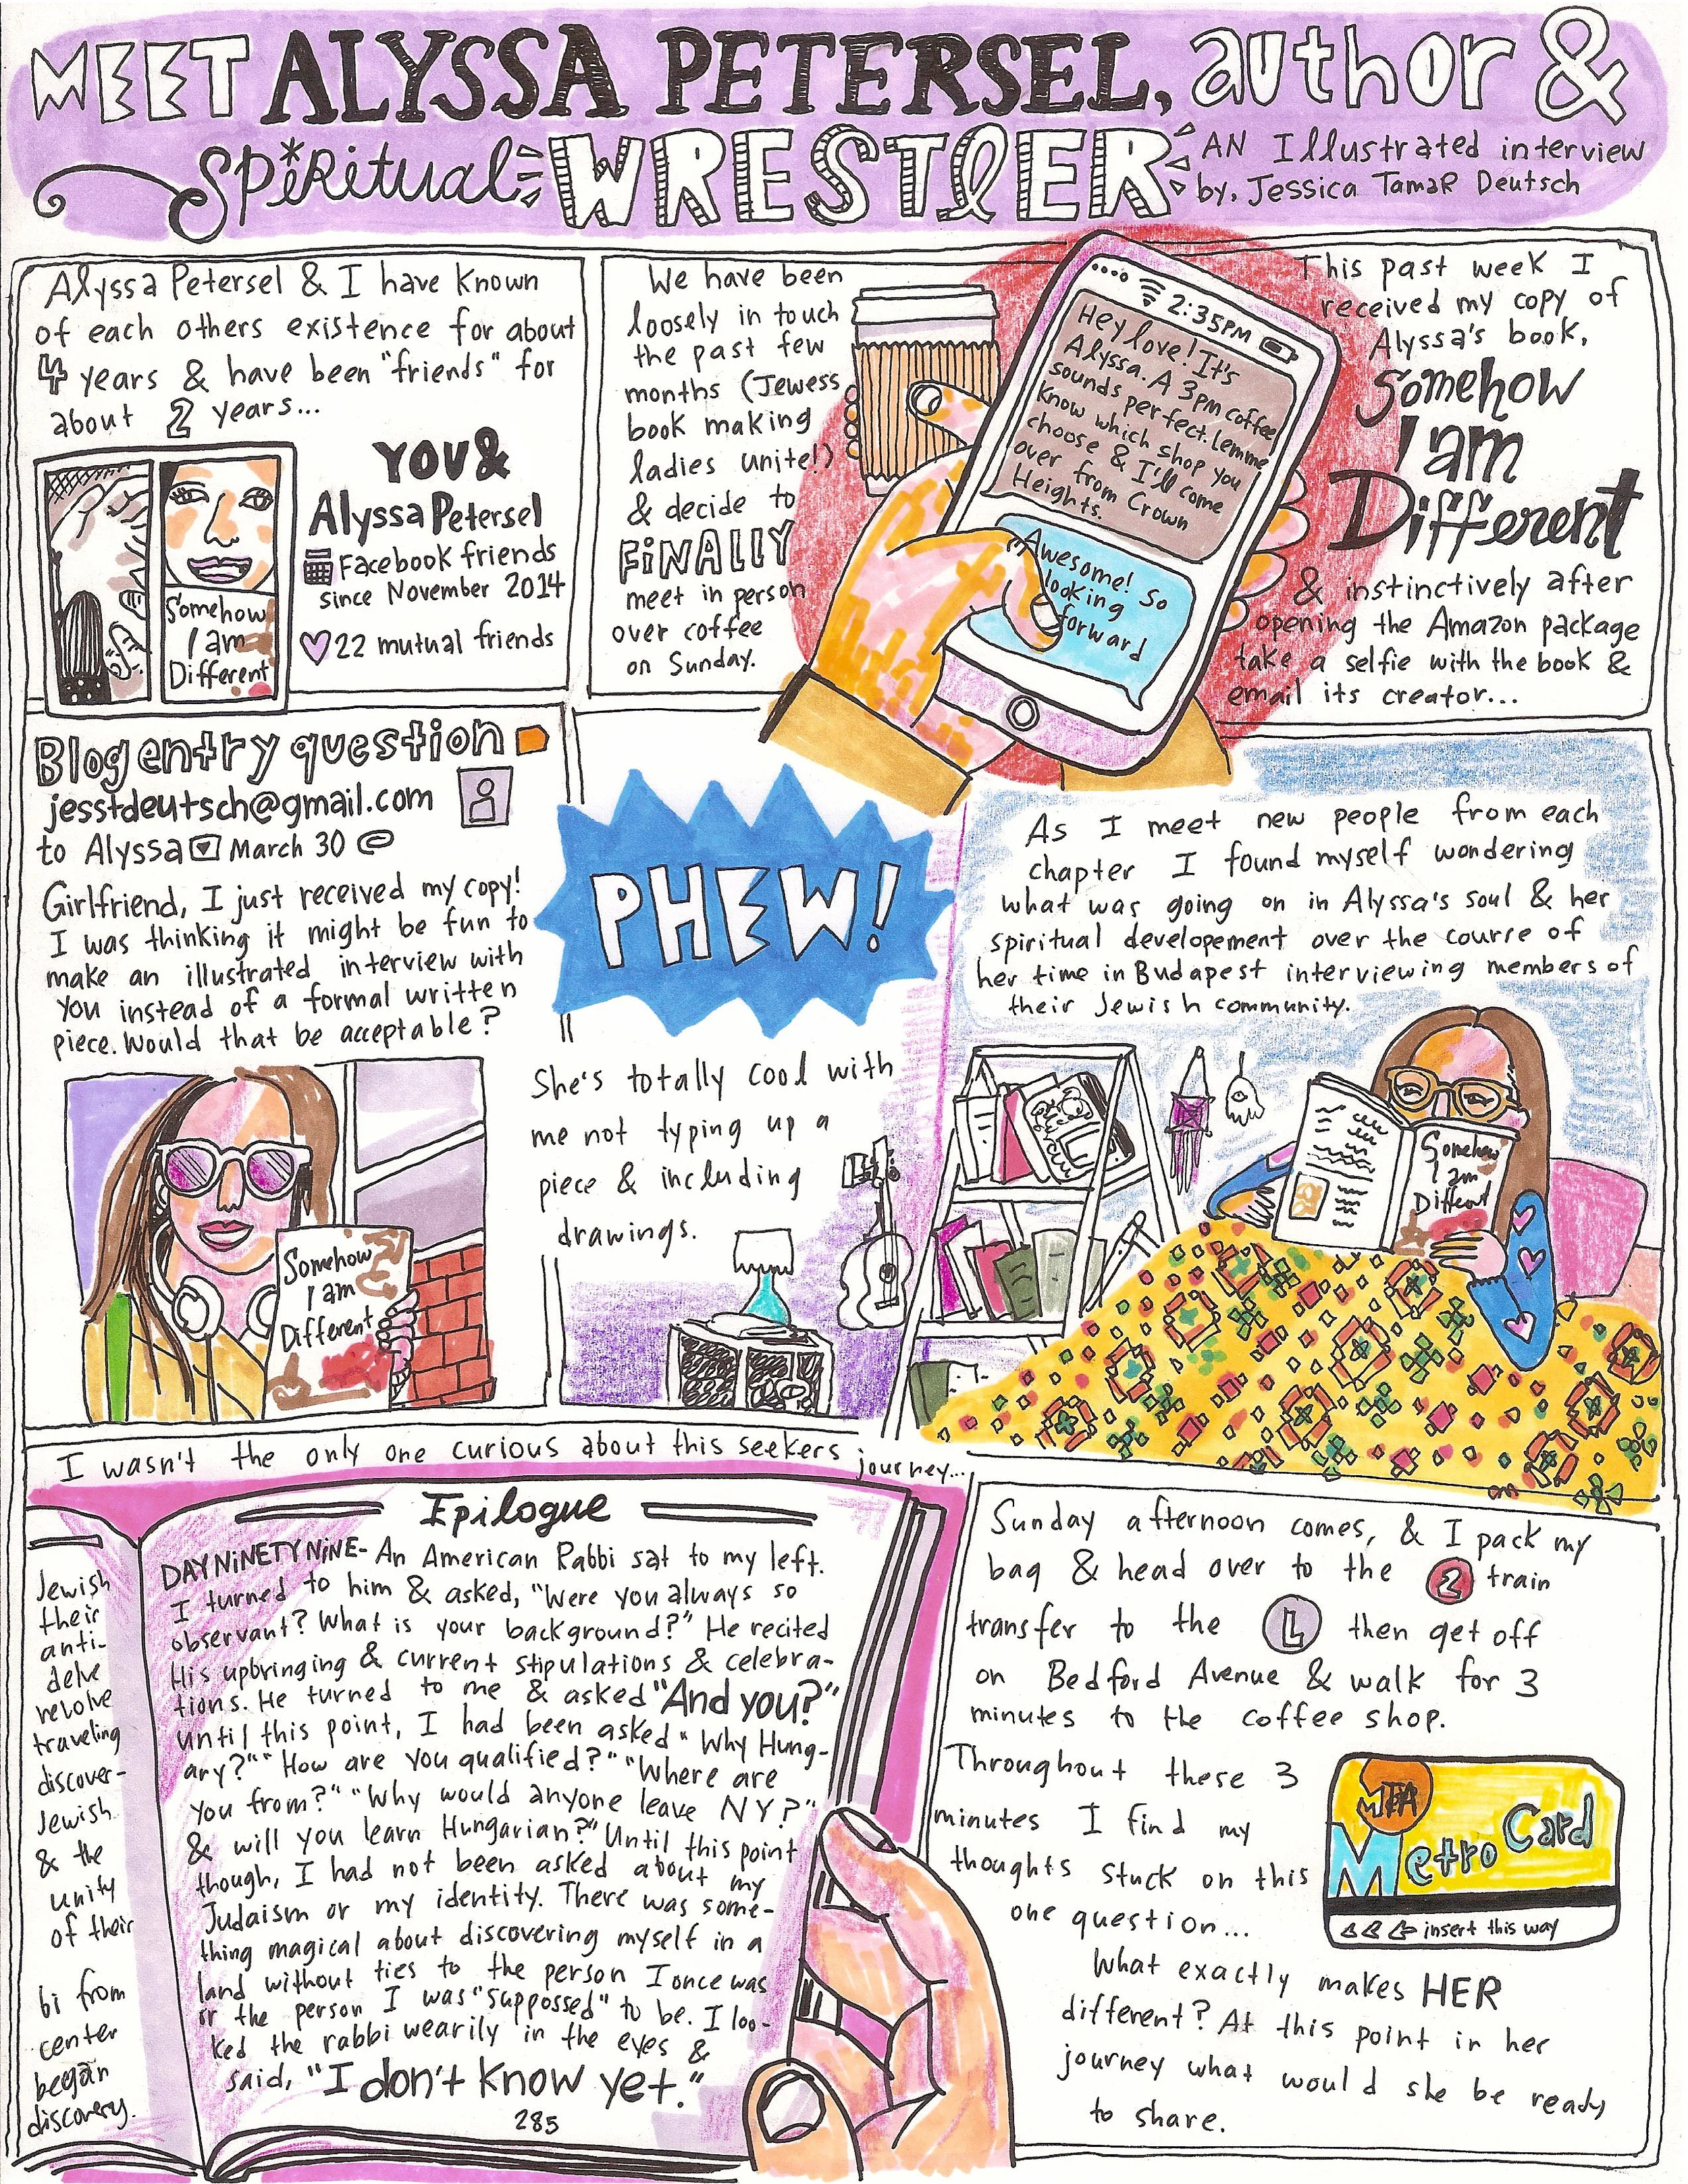 MEET ALYSSA PETERSEL, author &
Spiritual WRESTLER
AN Illustrated interview
by, Jessica Tamar Deutsch
Alyssa Petersel & I have known
of each others existence for about
4 years & have been "friends" for
about 2 years...
Somehow
I am
Different
YOU &
Alyssa Petersel
Facebook friends
since November 2014
22 mutual friends
We have been
loosely in touch
the past few
months (Jewess
book making
ladies unite!)
& decide to
FINALLY
meet in person
over coffee
on Sunday.
2:35PM
Hey love! It's
Alyssa. A 3pm coffee
sounds perfect. Lemme
know which shop you
choose & I'll come
over from Crown
Heights.
Awesome! So
looking
forward
This past week I
received my copy of
Alyssa's book,
Somehow
I am
Different
& instinctively after
opening the Amazon package
take a selfie with the book &
email its creator...
Blog entry question
jesstdeutsch@gmail.com
to Alyssa March 30 @
Girlfriend, I just received my copy!
I was thinking it might be fun to
make an illustrated interview with
you instead of a formal written
piece. Would that be acceptable?
Somehow
I am
Different
PHEW!
She's totally cool with
me not typing up a
piece & including
drawings.
As I meet new people from each
chapter I found myself wondering
what was going on in Alyssa's soul & her
spiritual developement over the course of
her time in Budapest interviewing members of
their Jewish community.
Somehow
I am
Different
I wasn't the only one curious about this seekers journey...
Jewish
their
anti-
delve
revolve
traveling
discover-
Jewish
& the
unity
of their
bi from
center
began
discovery.
Epilogue
DAY NINETY NINE- An American Rabbi sat to my left.
I turned to him & asked, "Were you always so
observant? What is your background?" He recited
His upbringing & current stipulations & celebra-
tions. He turned to me & asked "And you?"
Until this point, I had been asked "Why Hung-
ary?" "How are you qualified?" "Where are
you from?" "Why would anyone leave NY?"
& will you learn Hungarian?" Until this point
though, I had not been asked about my
Judaism or my identity. There was some-
thing magical about discovering myself in a
land without ties to the person I once was
or the person I was "supposed" to be. I loo-
ked the rabbi wearily in the eyes &
said, "I don't know yet."
285
Sunday afternoon comes, & I pack my
bag & head over to the 2 train
transfer to the L then get off
on Bedford Avenue & walk for 3
minutes to the coffee shop.
Throughout these 3
minutes I find my
thoughts stuck on this
one question...
MTA
MetroCard
insert this way
What exactly makes HER
different? At this point in her
journey what would she be ready
to share.